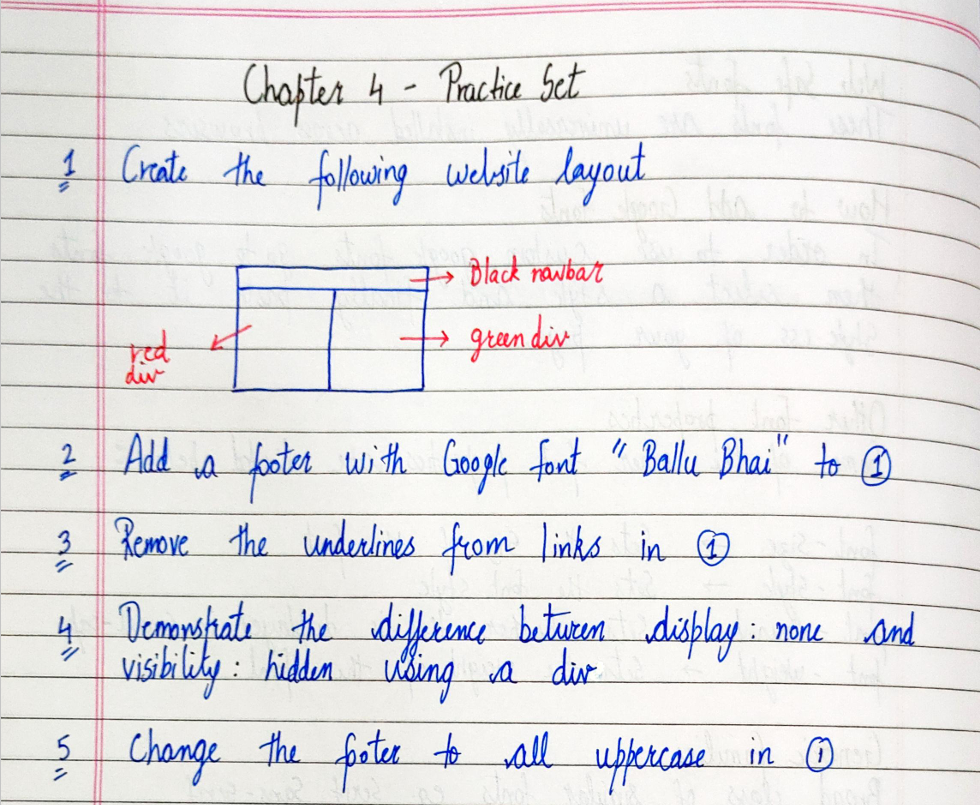 Chapter 4 - Practice Set
1 Create the following website layout
→ Black navbar
red div
→ green div
2 Add a footer with Google font "Ballu Bhai" to ①
3 Remove the underlines from links in ①
4 Demonstrate the difference between display: none and
visibility: hidden using a div.
5 Change the footer to all uppercase in ①